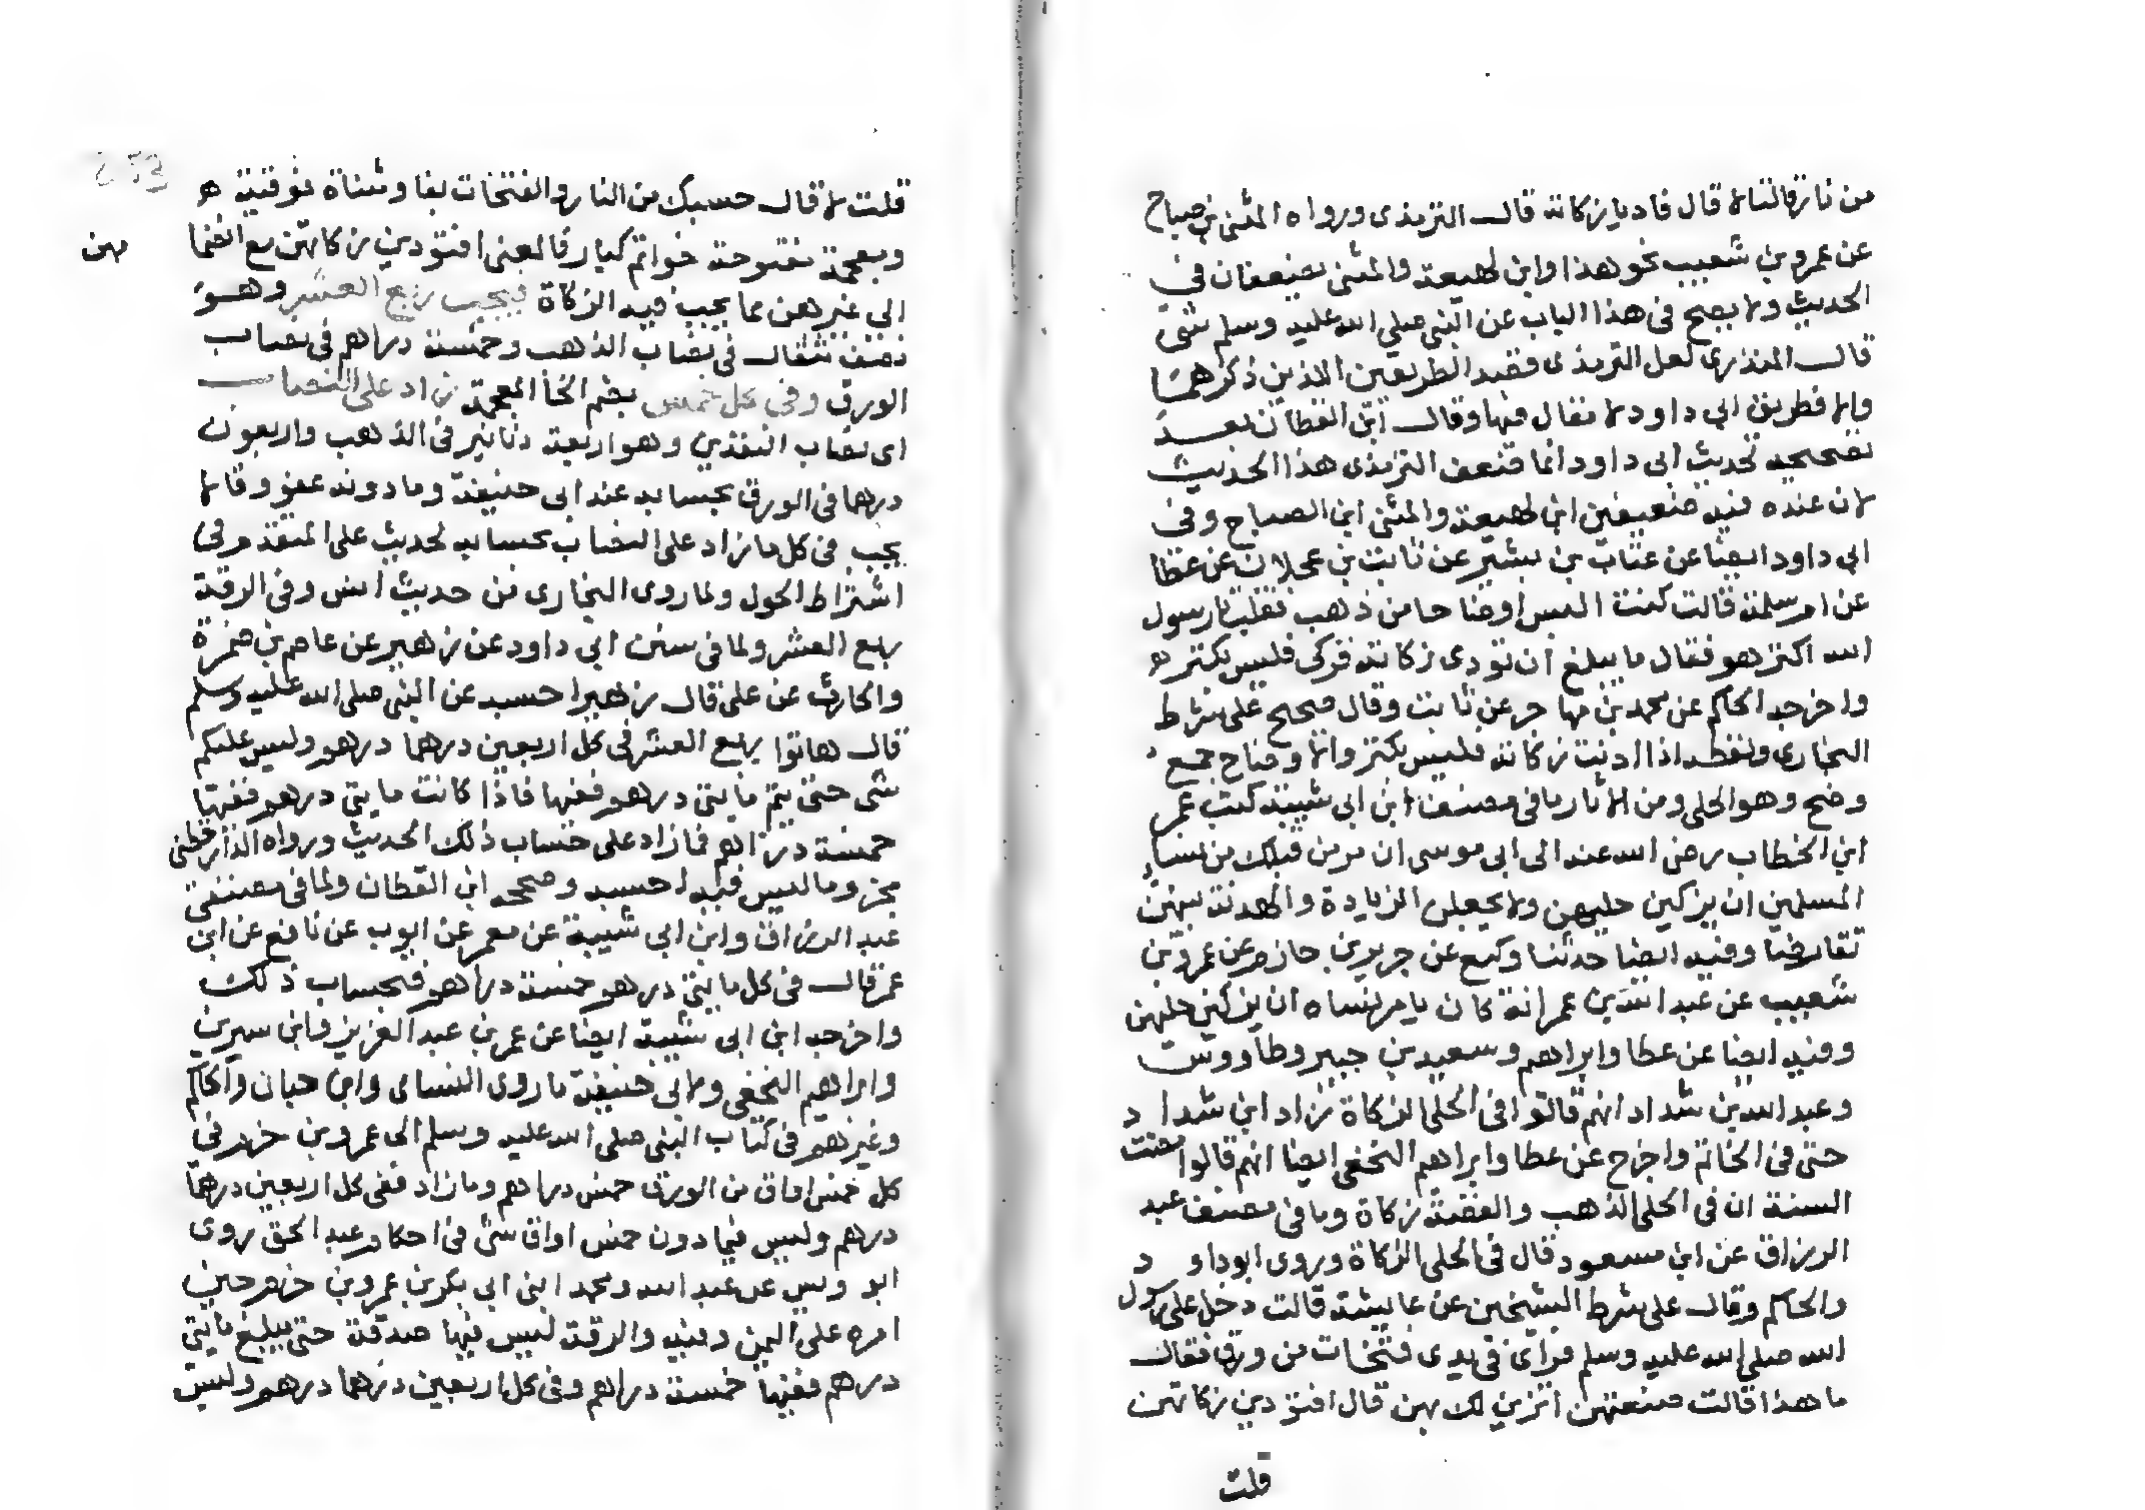 من نار قالتا لا قال فاديا زكاته قال الترمذى ورواه المثنى بن صباح
عن عمرو بن شعيب نحو هذا وابن لهيعة والمثنى يضعفان فى
الحديث ولا يصح فى هذا الباب عن النبى صلى الله عليه وسلم شئ
قال المنذرى لعل الترمذى قصد الطريقين اللذين ذكرهما
والا فطريق ابى داود لا مقال فيها وقال ابن القطان بعد
تصحيحه لحديث ابى داود انما ضعف الترمذى هذا الحديث
لان عنده فيه ضعيفين ابن لهيعة والمثنى ابن الصباح وفى
ابى داود ايضا عن عتاب بن بشير عن ثابت بن عجلان عن عطا
عن ام سلمة قالت كنت البس اوضاحا من ذهب فقلت يارسول
الله اكنز هو فقال ما يبلغ ان تودى زكاته فزكى فليس بكنز هو
واخرجه الحاكم عن محمد بن مهاجر عن ثابت وقال صحيح على شرط
البخارى ولفظه اذا اديت زكاته فليس بكنز والاوضاح جمع
وضح وهو الحلى ومن الاثار ما فى مصنف ابن ابى شيبة كتب عمر
ابن الخطاب رضى الله عنه الى ابى موسى ان مر من قبلك من نساء
المسلمين ان يزكين حليهن ولا يجعلن الزيادة والهدية بينهن
تقارضا وفيه ايضا حدثنا وكيع عن جرير بن حازم عن عمرو بن
شعيب عن عبد الله بن عمر انه كان يامر نساه ان يزكين حليهن
وفيه ايضا عن عطا وابراهيم وسعيد بن جبير وطاووس
وعبد الله بن شداد انهم قالوا فى الحلى الزكاة زاد ابن شداد
حتى فى الخاتم واخرج عن عطا وابراهيم النخعى ايضا انهم قالوا مضت
السنة ان فى الحلى الذهب والفضة زكاة وما فى مصنف عبد
الرزاق عن ابن مسعود قال فى الحلى الزكاة وروى ابو داود
والحاكم وقال على شرط الشيخين عن عايشة قالت دخل على رسول
الله صلى الله عليه وسلم فراى فى يدى فتخات من ورق فقال
ما هذا قالت صنعتهن اتزين لك بهن قال افتودين زكاتهن
قلت
قلت لا قال حسبك من النار والفتخات بفا ومثناة فوقية هو
ومعجمة مفتوحة خواتم كبار فالمعنى افتودين زكاتهن مع انضما
مهن
الى غيرهن مما يجب فيه الزكاة فيجب ربع العشر وهو
نصف مثقال فى نصاب الذهب وخمسة دراهم فى نصاب
الورق وفى كل خمس بضم الخا المعجمة زاد على النصاب
اى نصاب النقدين وهو اربعة دنانير فى الذهب واربعون
درهما فى الورق بحسابه عند ابى حنيفة وما دونه عفو وقالا
يجب فى كل ما زاد على النصاب بحسابه لحديث على المتقدم فى
اشتراط الحول ولما روى البخارى من حديث انس وفى الرقة
ربع العشر ولما فى سنن ابى داود عن زهير عن عاصم بن ضمرة
والحارث عن على قال زهير احسبه عن النبى صلى الله عليه وسلم
قال هاتوا ربع العشر فى كل اربعين درهما درهم وليس عليكم
شى حتى يتم مايتى درهم ففيها فاذا كانت مايتى درهم ففيها
خمسة دراهم فما زاد على حساب ذلك الحديث ورواه الدارقطنى
مجزوما ليس فيه احسبه وصححه ابن القطان ولما فى مصنفى
عبد الرزاق وابن ابى شيبة عن معمر عن ايوب عن نافع عن ابن
عمر قال فى كل مايتى درهم خمسة دراهم فبحساب ذلك
واخرجه ابن ابى شيبة ايضا عن عمر بن عبد العزيز وابن سيرين
وابراهيم النخعى ولابى حنيفة ما روى النساى وابن حبان والحاكم
وغيرهم فى كتاب النبى صلى الله عليه وسلم الى عمرو بن حزم فى
كل خمس اواق من الورق خمس دراهم وما زاد ففى كل اربعين درهما
درهم وليس فيما دون خمس اواق شئ فى احكام عبد الحق روى
ابو اويس عن عبد الله ومحمد ابنى ابى بكر بن عمرو بن حزم حين
امره على اليمن وفيه والرقة ليس فيها صدقة حتى يبلغ مايتى
درهم ففيها خمسة دراهم وفى كل اربعين درهما درهم وليس